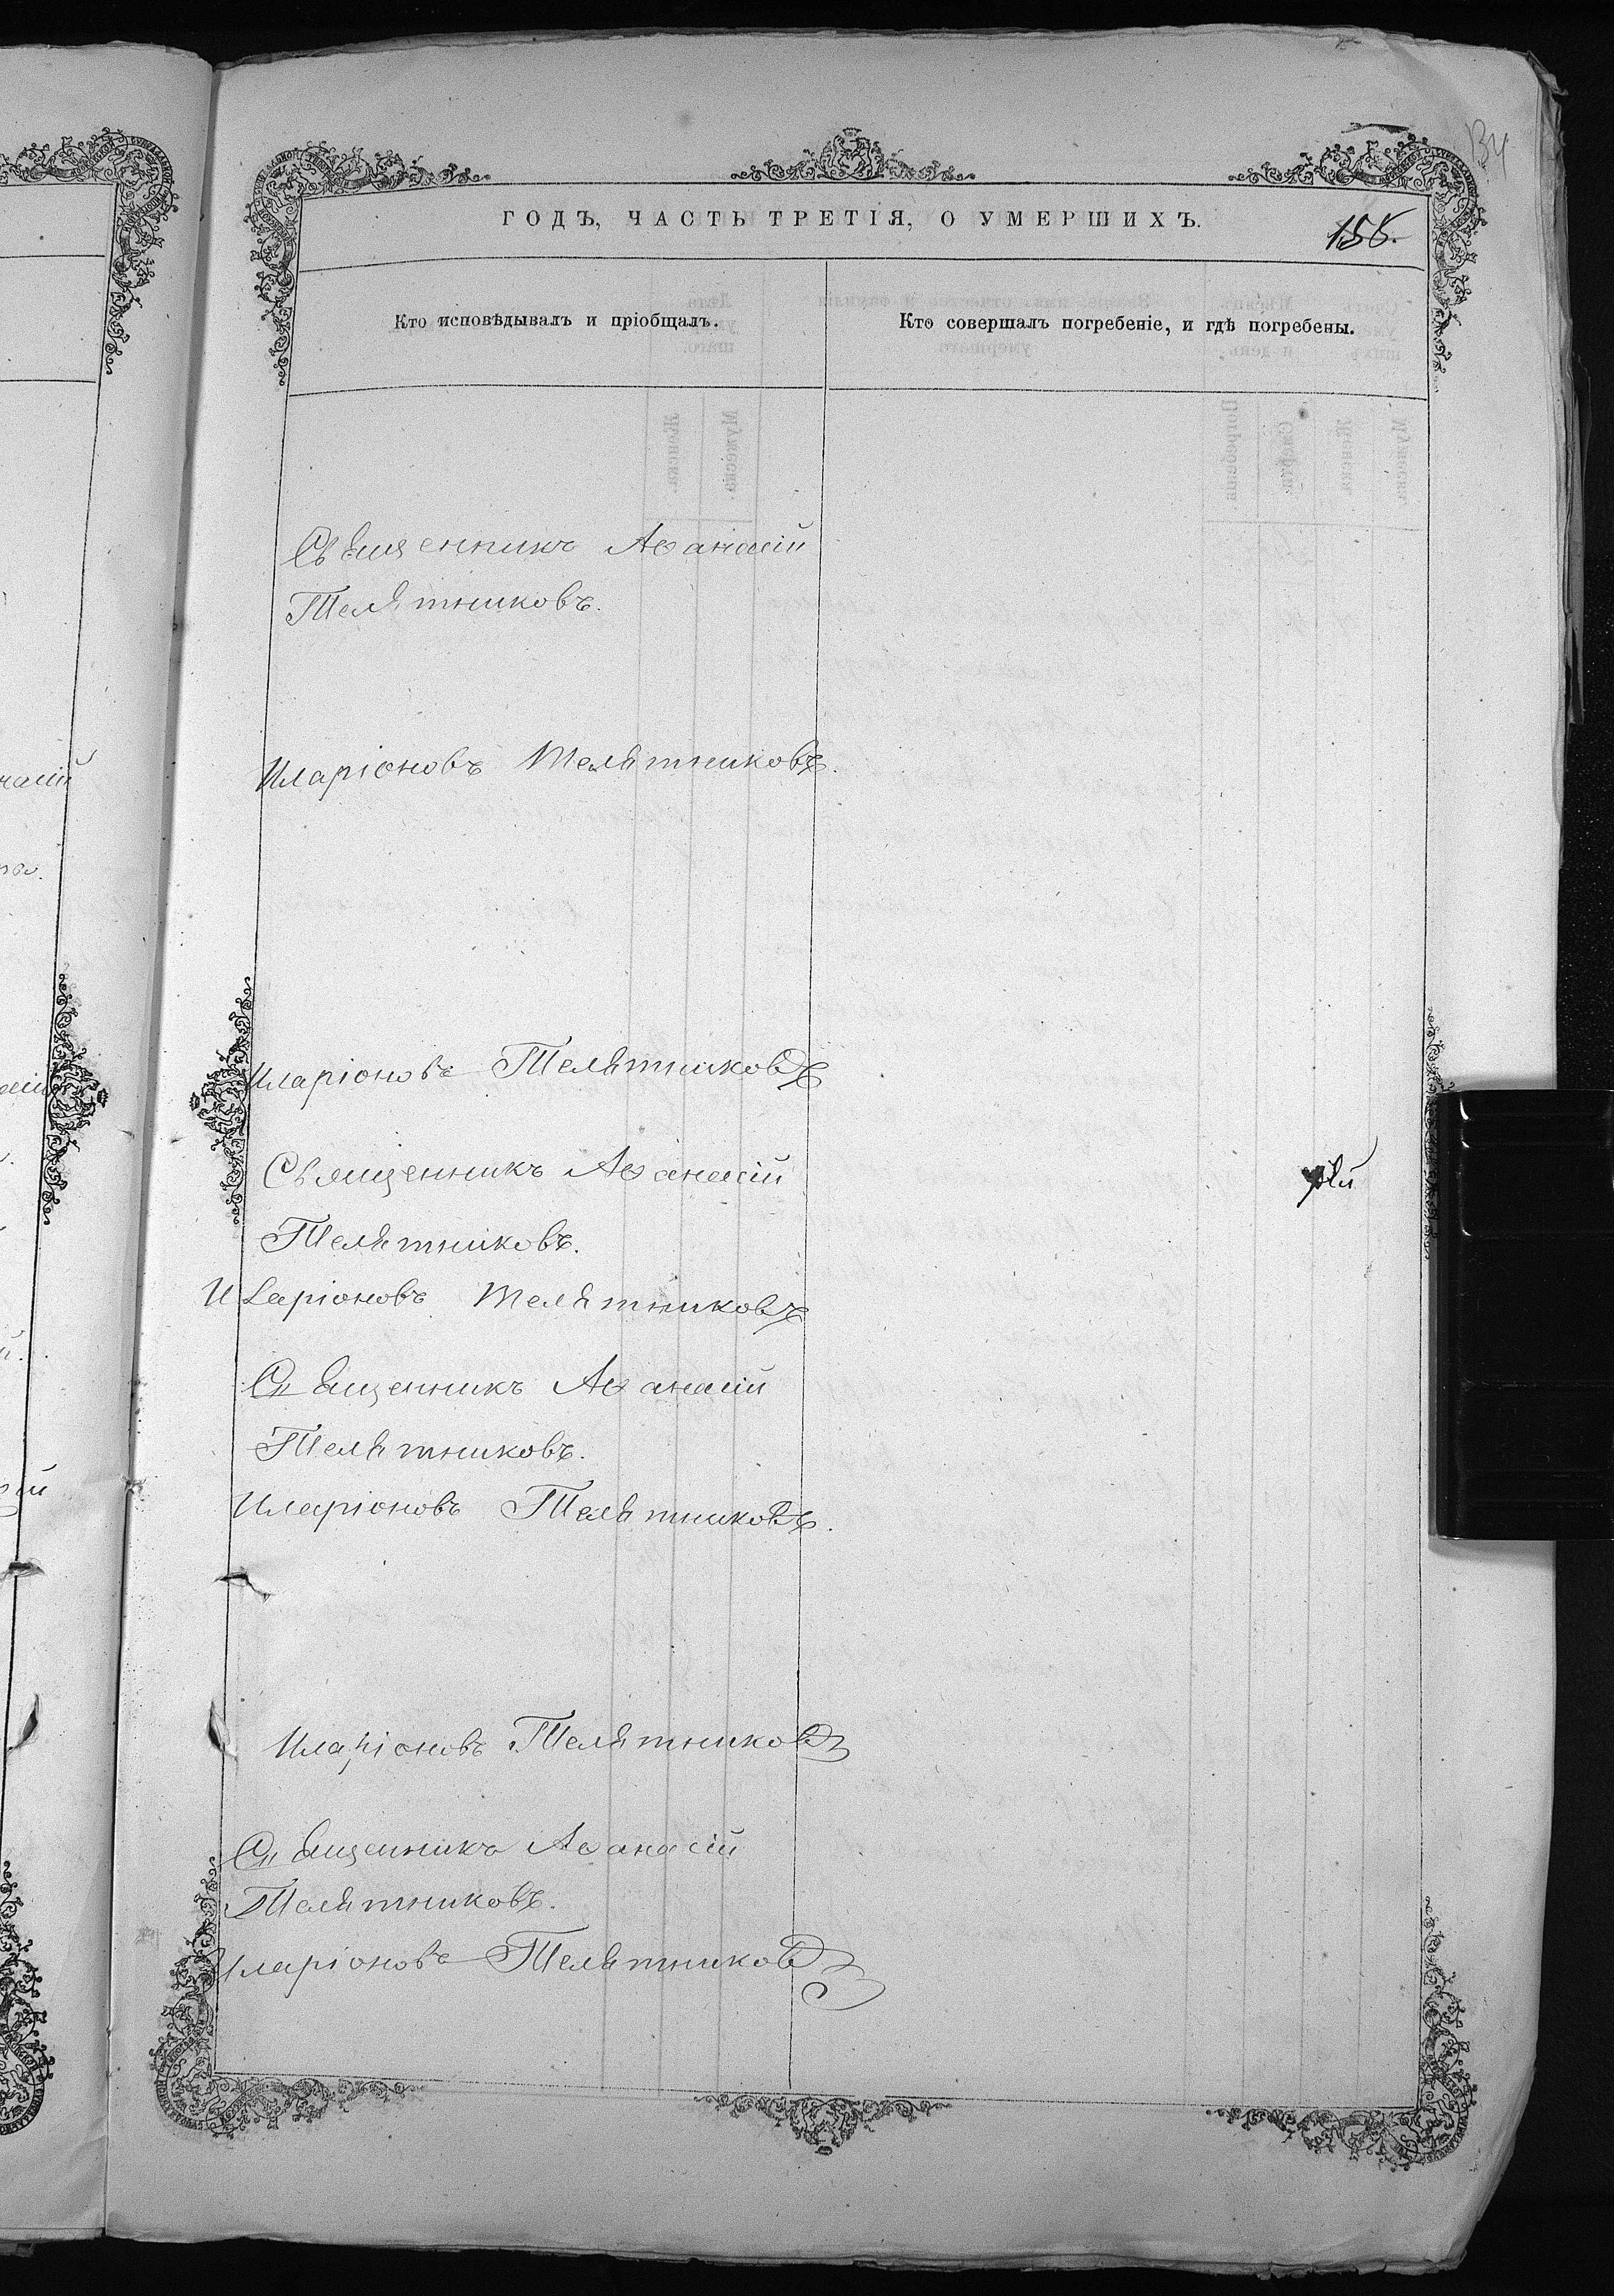 ГОДЪ, ЧАСТЬ ТРЕТІЯ, О УМЕРШИХЪ.
Кто исповѣдывалъ и пріобщалъ.
Кто совершалъ погребеніе, и гдѣ погребены.
Священникъ Аѳанасій
Телятниковъ.
Иларіоновъ Телятниковъ.
Иларіоновъ Телятниковъ
Священникъ Аѳанасій
Телятниковъ.
Иларіоновъ Телятниковъ
Священникъ Аѳанасій
Телятниковъ.
Иларіоновъ Телятниковъ.
Иларіоновъ Телятниковъ
Священникъ Аѳанасій
Телятниковъ.
Иларіоновъ Телятниковъ